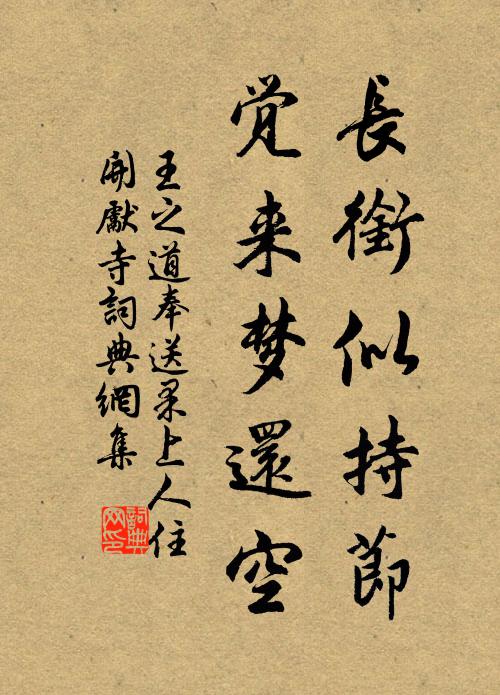 長銜似持節
觉来梦還空
王之道奉送杲上人住
開獻寺詞典網集
詞典网印